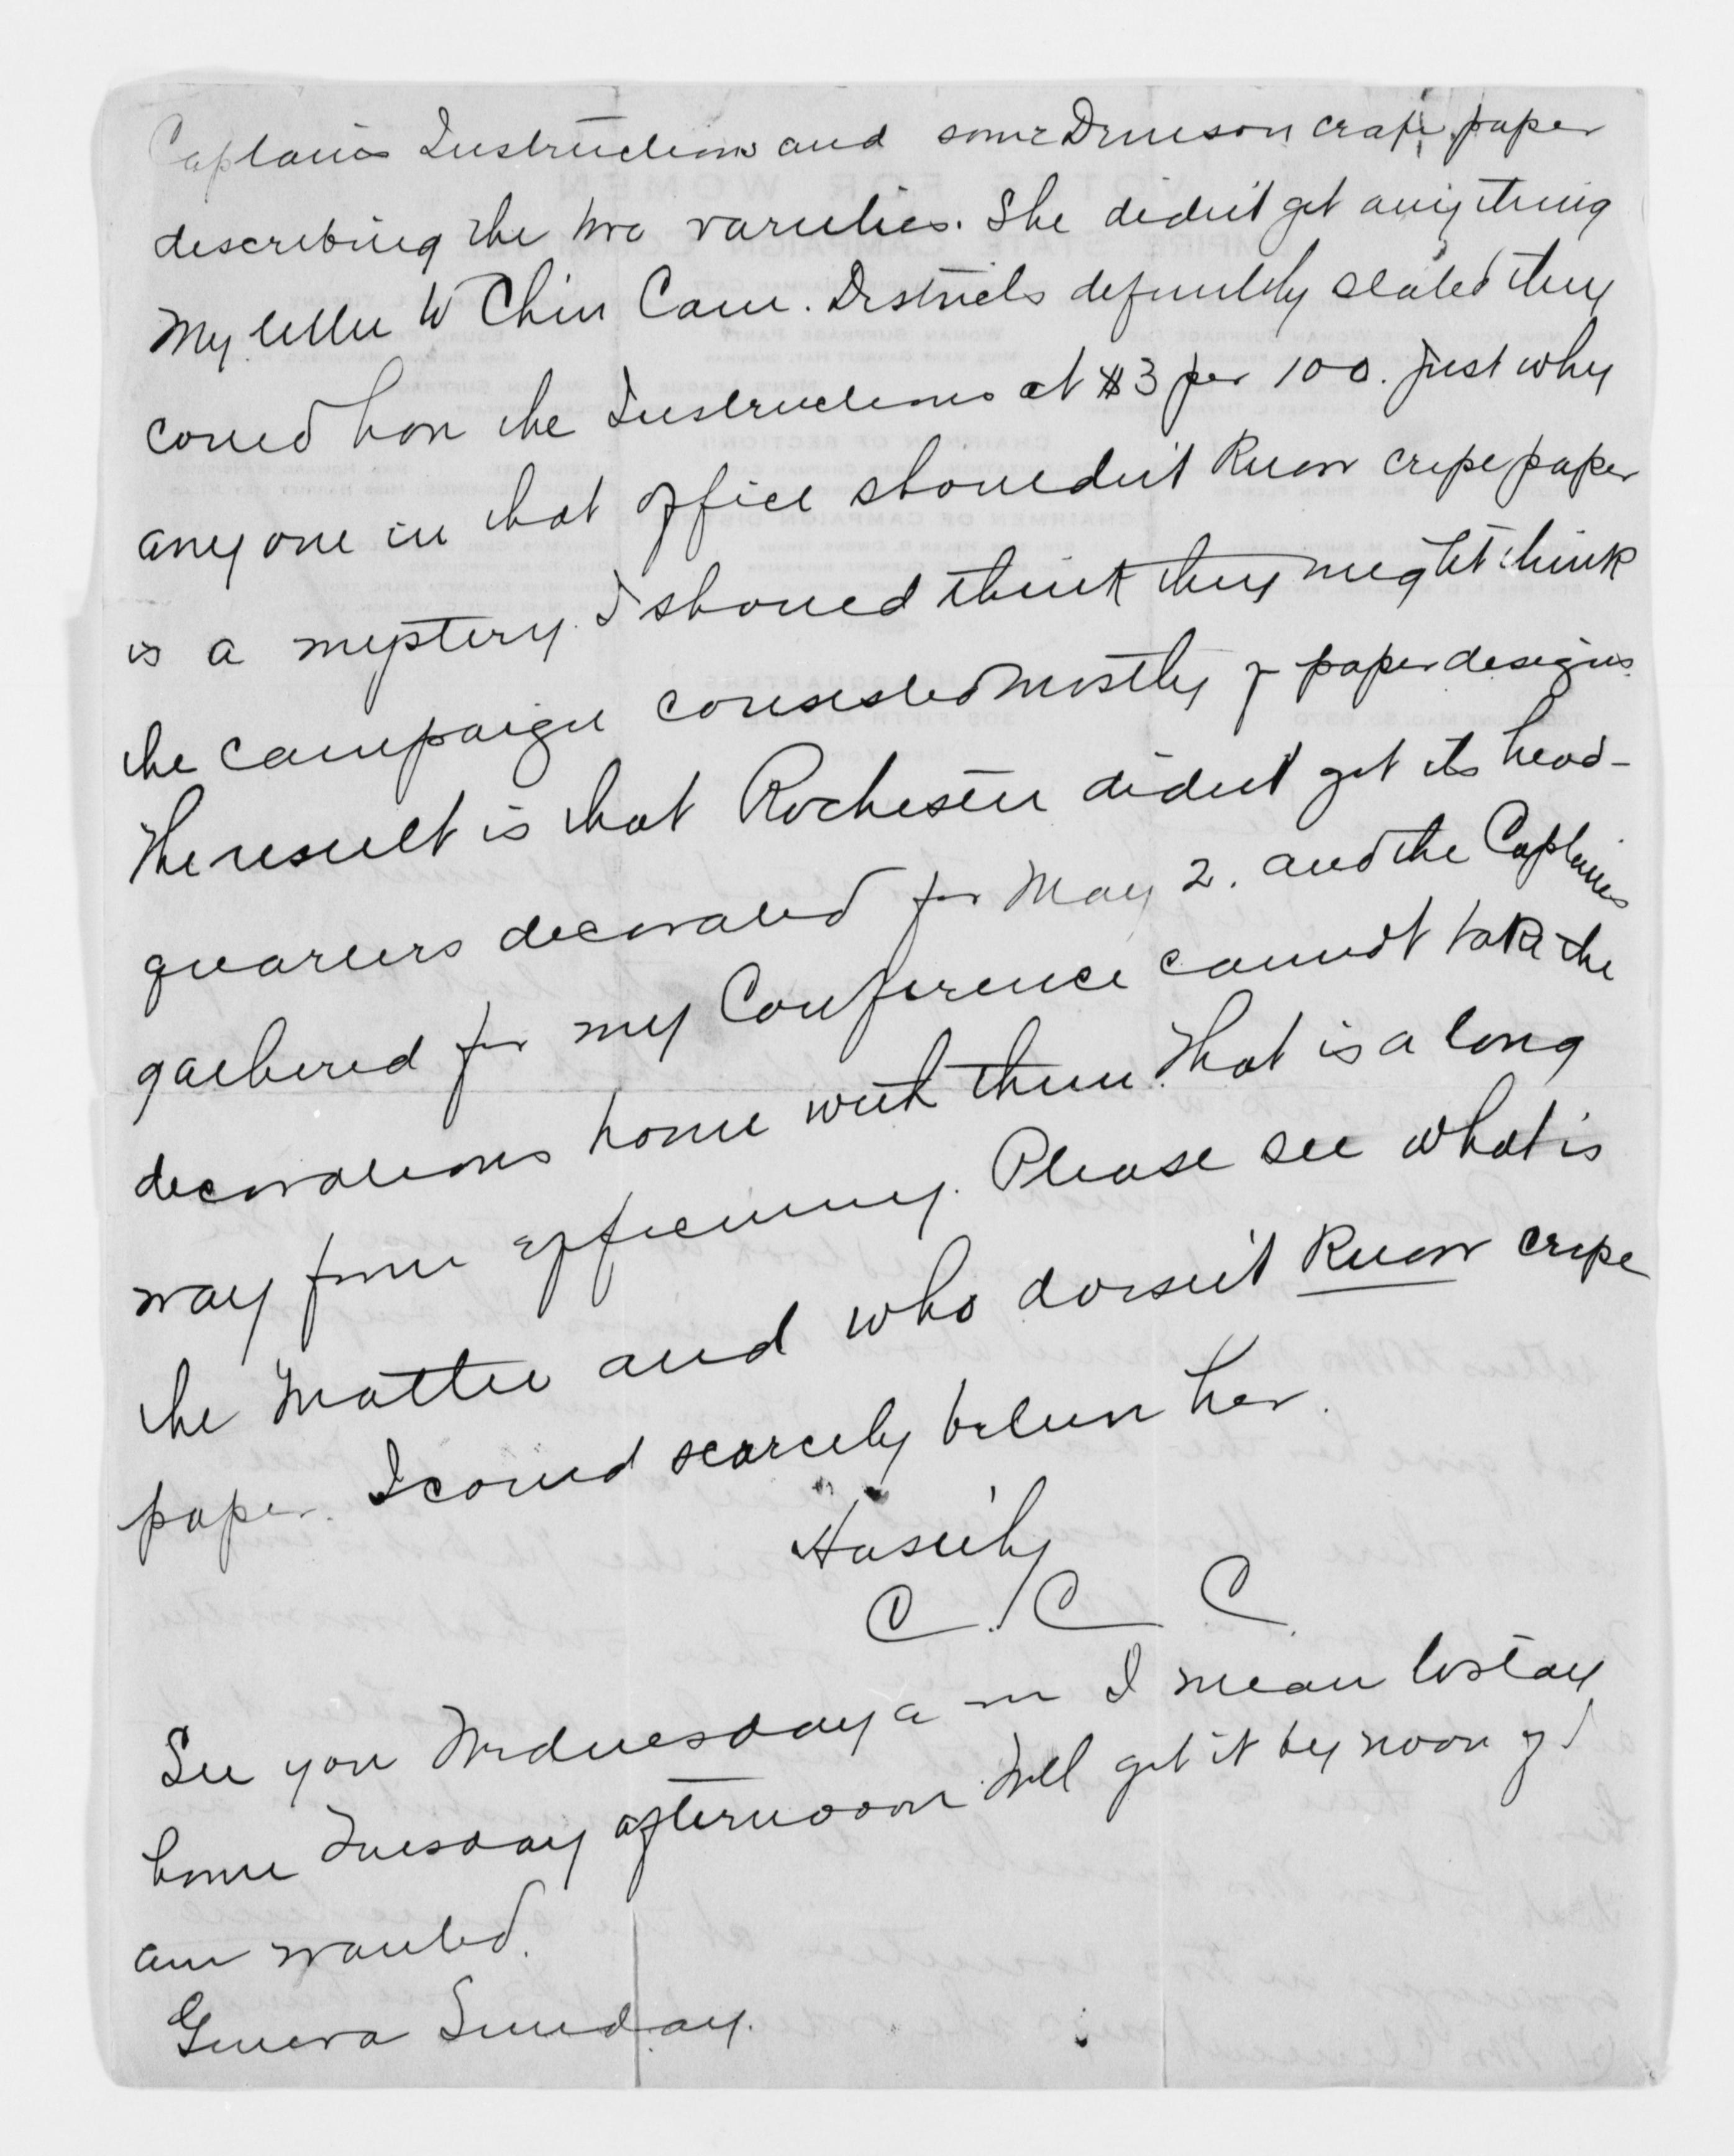 Captains Instructions and some Denison crape paper
describing the two varieties. She didn't get anything
My letter to Chin Cam. Districts definitely stated they
could have the Instructions at $3 per 100. Just why
anyone in that office shouldn't know crepe paper
is a mystery. I should think they might think
the campaign consisted mostly of paper designs.
The result is that Rochester didn't get its head-
quarters decorated for May 2. and the Captains
gathered for my Conference cannot take the
decorations home with them. That is a long
way from efficiency. Please see what is
the matter and who doesn't know crepe
paper. I could scarcely believe her.
Hastily
C. C. C.
See you Wednesday a m I mean to stay
home Tuesday afternoon Will get it by noon if I
am wanted.
Geneva Sunday.